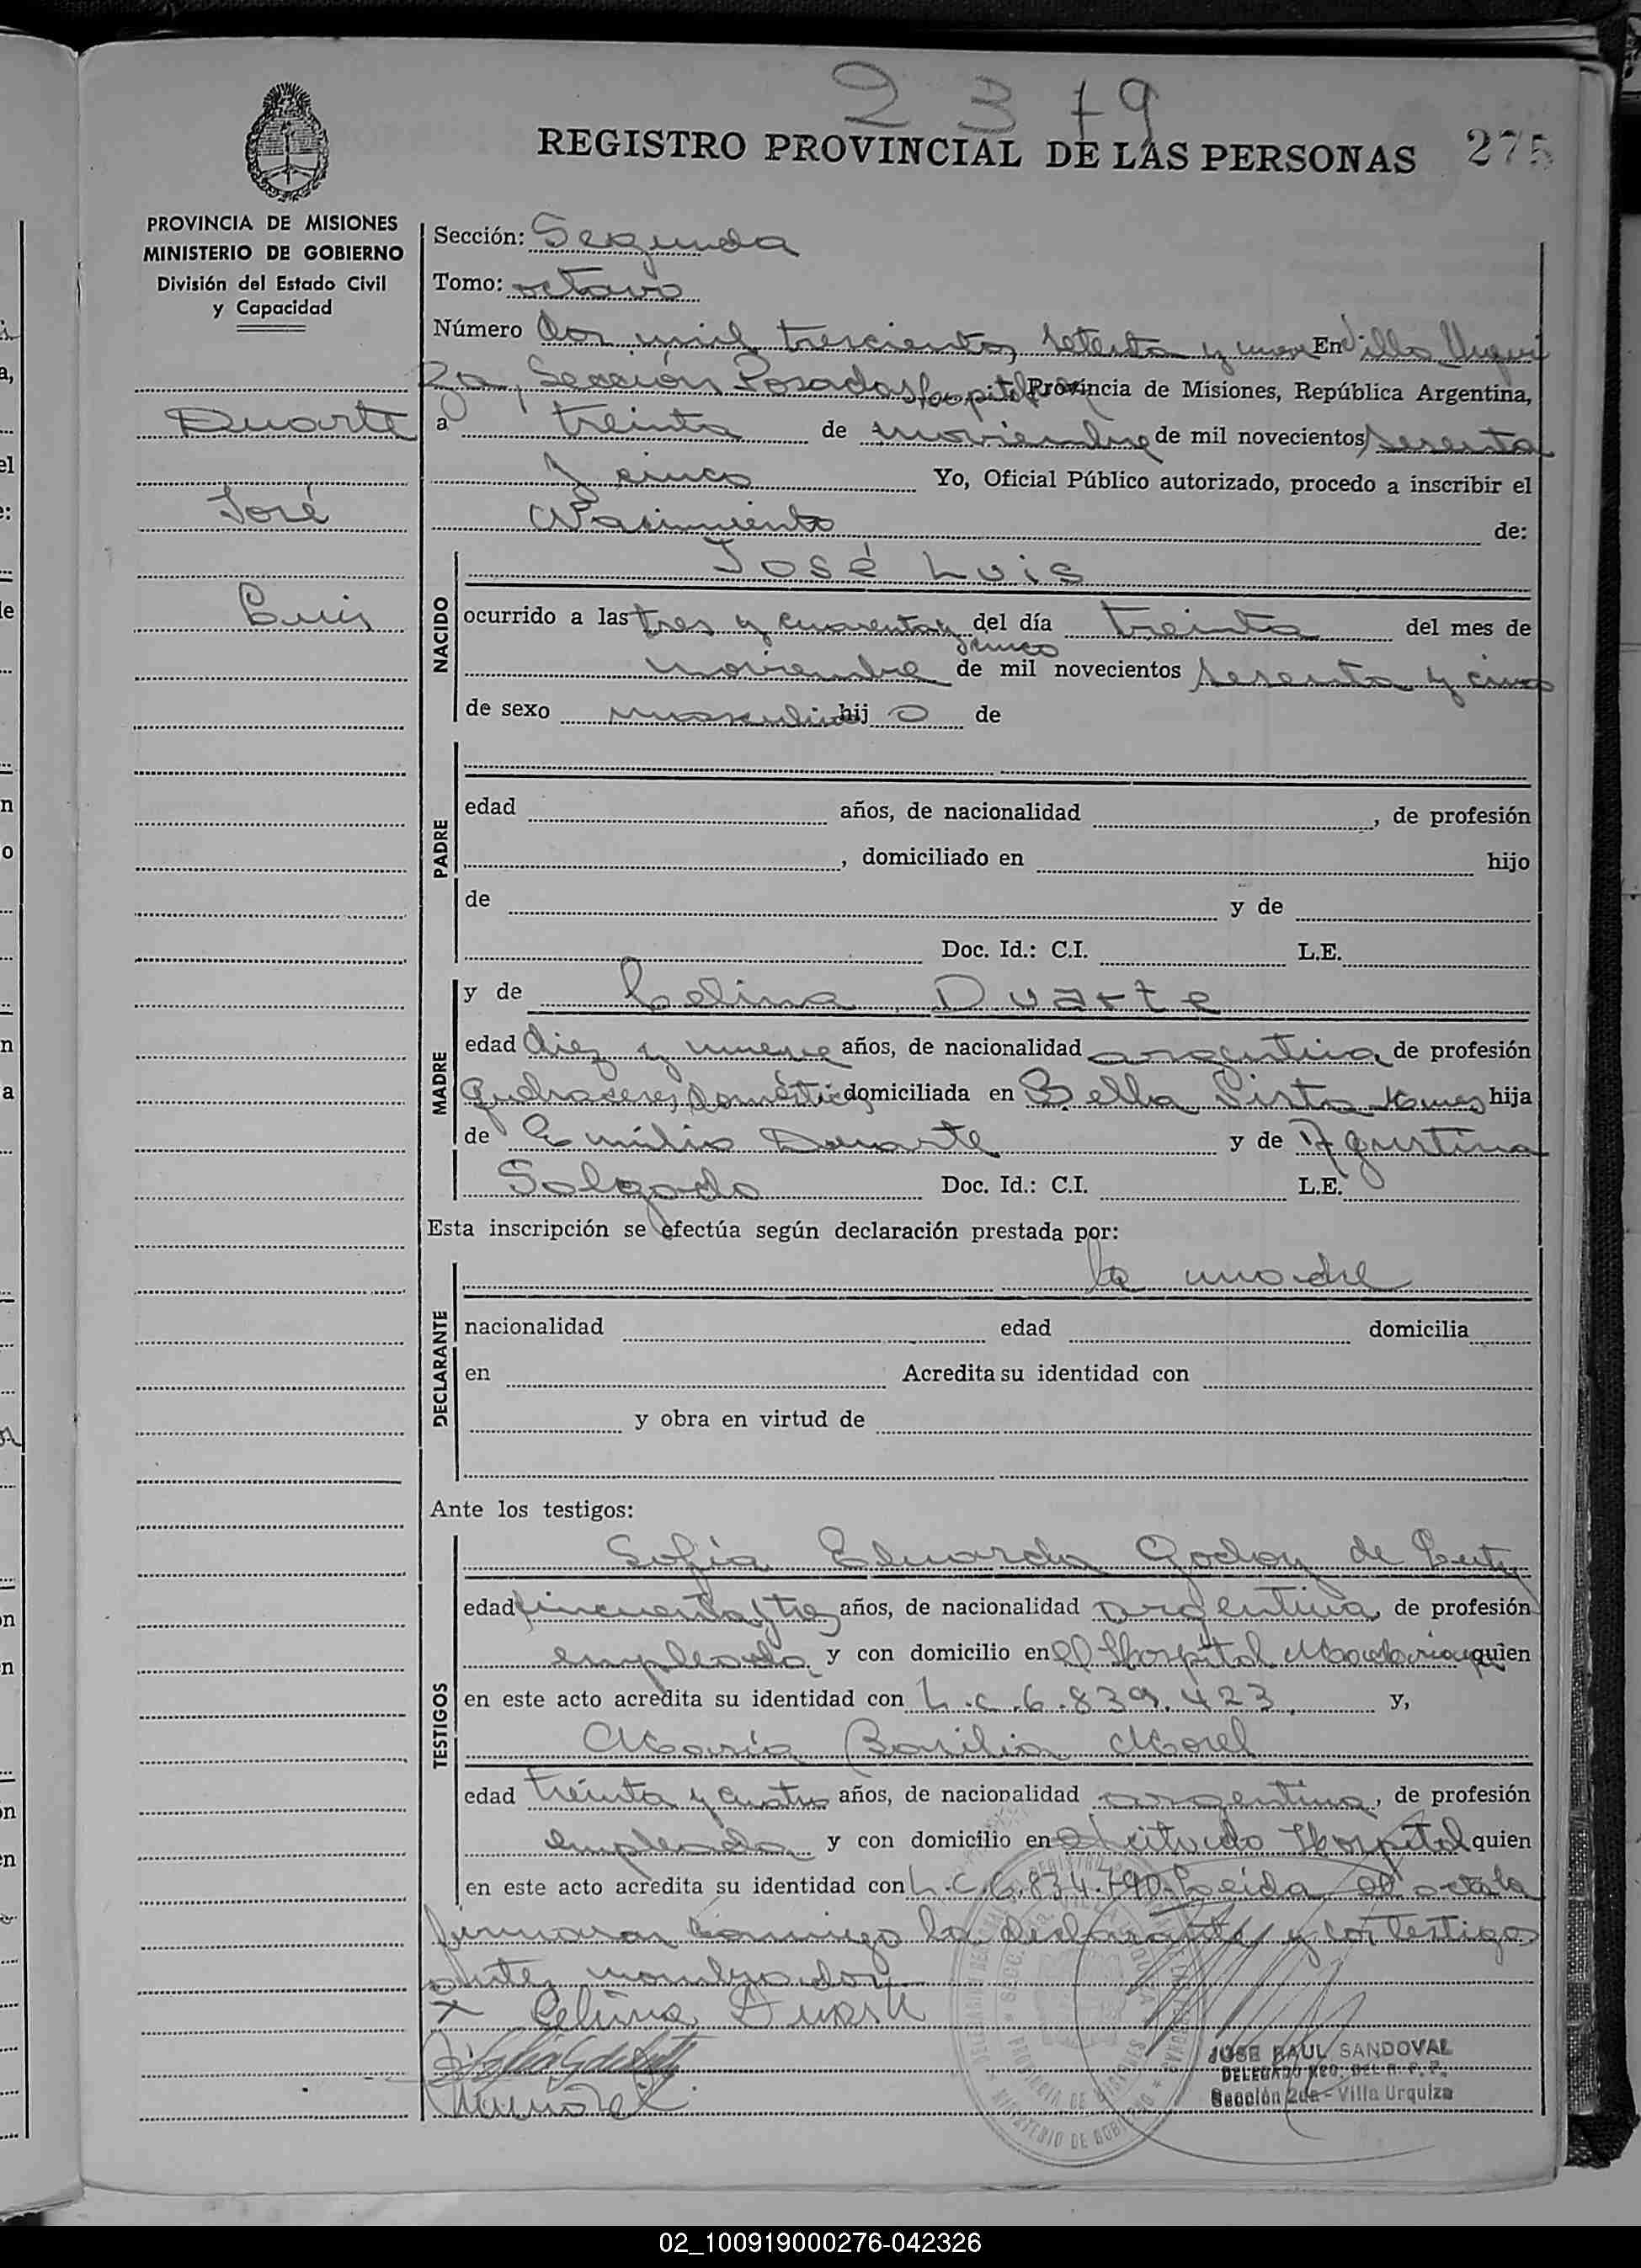 2379
REGISTRO PROVINCIAL DE LAS PERSONAS 275
PROVINCIA DE MISIONES
MINISTERIO DE GOBIERNO
División del Estado Civil
y Capacidad
Duarte
José
Luis
Sección: Segunda
Tomo: octavo
Número dos mil trescientos setenta y nueve En Villa Urqui
za, Sección Posadas hospital Provincia de Misiones, República Argentina,
a treinta de noviembre de mil novecientos sesenta
y cinco Yo, Oficial Público autorizado, procedo a inscribir el
Nacimiento de:
NACIDO
José Luis
ocurrido a las tres y cuarenta y cinco del día treinta del mes de
noviembre de mil novecientos sesenta y cinco
de sexo masculino hijo de
PADRE
edad años, de nacionalidad , de profesión
, domiciliado en hijo
de y de
Doc. Id.: C.I. L.E.
MADRE
y de Celina Duarte
edad diez y nueve años, de nacionalidad argentina de profesión
quehaceres domésticos domiciliada en Bella Vista hija
de Emilio Duarte y de Agustina
Salgado Doc. Id.: C.I. L.E.
Esta inscripción se efectúa según declaración prestada por:
DECLARANTE
la madre
nacionalidad edad domicilia
en Acredita su identidad con
y obra en virtud de
Ante los testigos:
TESTIGOS
Sofía Eduarda Godoy de
edad cincuenta y tres años, de nacionalidad argentina, de profesión
empleada y con domicilio en el Hospital Madariaga quien
en este acto acredita su identidad con L.C.6.839.423, y,
María Basilia Morel
edad treinta y cuatro años, de nacionalidad argentina, de profesión
empleada y con domicilio en el citado Hospital quien
en este acto acredita su identidad con L.C.6.834.790. Leída el acta la
firmaron conmigo la declarante y los testigos
antes nombrados.
x Celina Duarte
JOSE RAUL SANDOVAL
DELEGADO REG. DEL R. P. P.
Sección 2da - Villa Urquiza
02_100919000276-042326